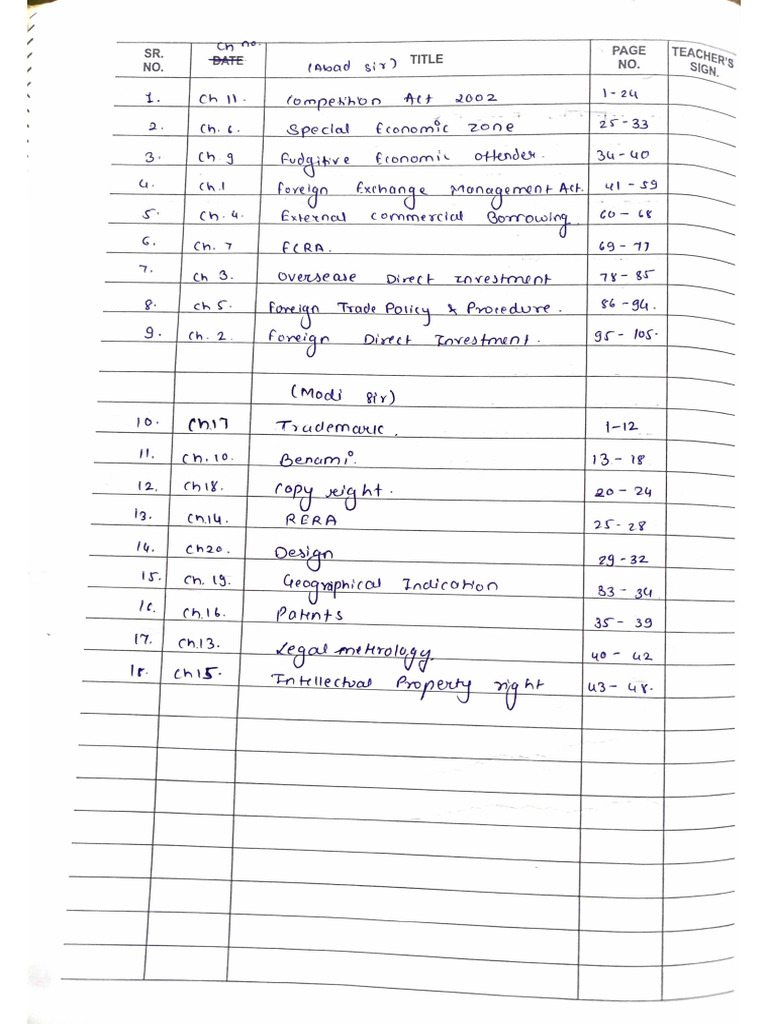 SR. NO. Ch no. DATE (Abad Sir) TITLE PAGE NO. TEACHER'S SIGN.
1. Ch 11. Competition Act 2002 1-24
2. Ch. 6. Special Economic Zone 25-33
3. Ch 9 Fudgitive Economic offender. 34-40
4. Ch.1 Foreign Exchange Management Act. 41-59
5. Ch. 4. External Commercial Borrowing. 60-68
6. Ch. 7 FCRA. 69-77
7. Ch 3. Oversease Direct Investment 78-85
8. Ch 5. Foreign Trade Policy & Procedure. 86-94.
9. Ch. 2. Foreign Direct Investment. 95-105.
(Modi Sir)
10. Ch.17 Trademark. 1-12
11. Ch. 10. Benami. 13-18
12. Ch18. Copy reight. 20-24
13. Ch.14. RERA 25-28
14. Ch20. Design 29-32
15. Ch. 19. Geographical Indication 33-34
16. Ch.16. Patents 35-39
17. Ch.13. Legal methrology. 40-42
18. Ch15. Intellectual Property right 43-48.